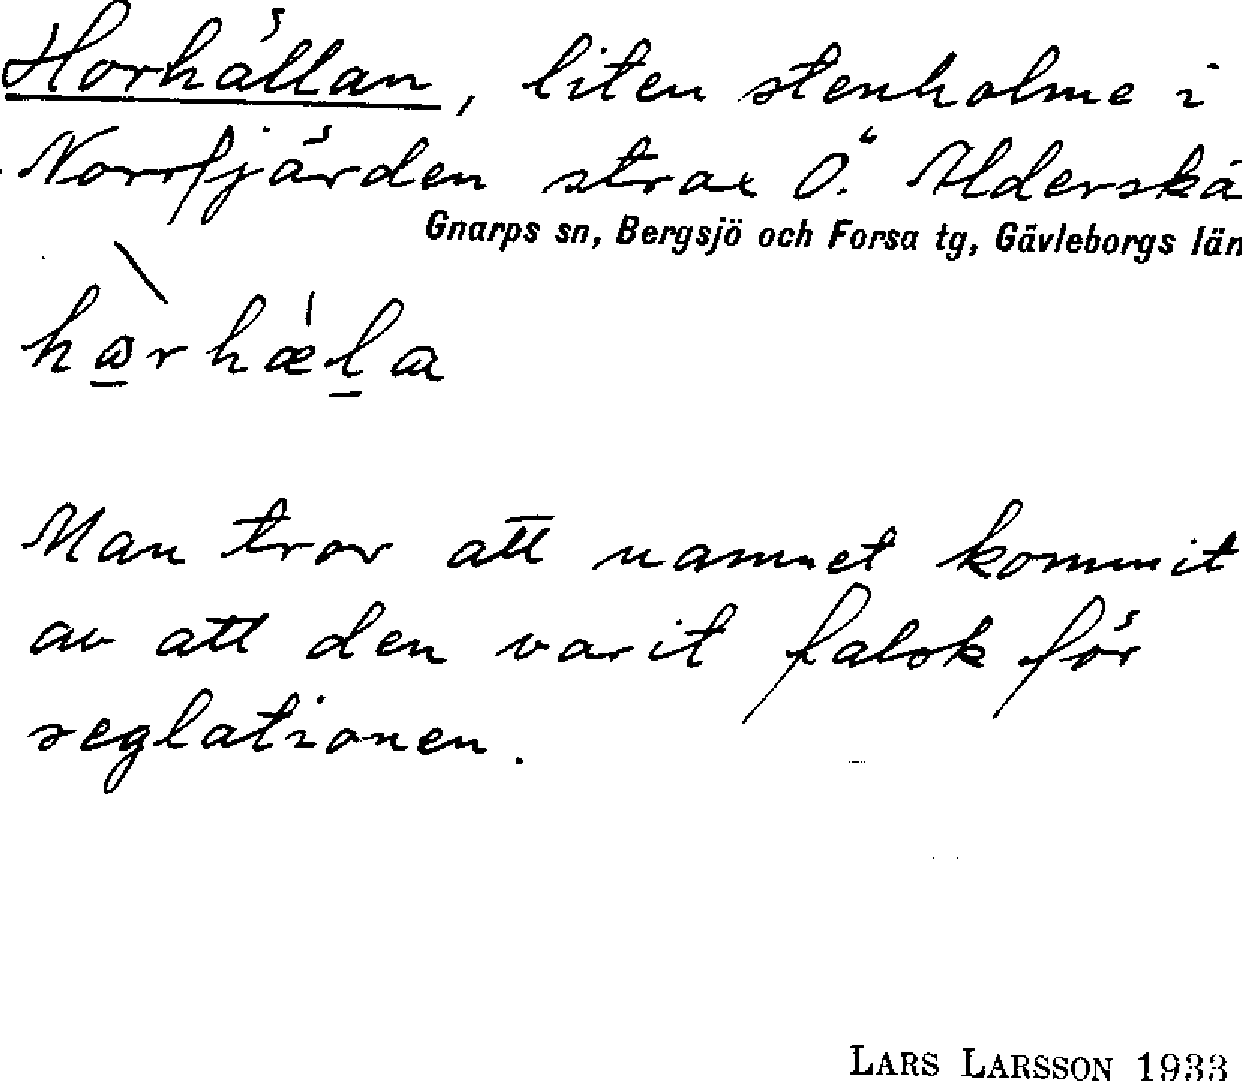 Horhällan, liten stenholme i
Norrfjärden strax Ö. Alderskä
Gnarps sn, Bergsjö och Forsa tg, Gävleborgs län
Man tror att namnet kommit
av att den varit falsk för
seglationen.
LARS LARSSON 1933